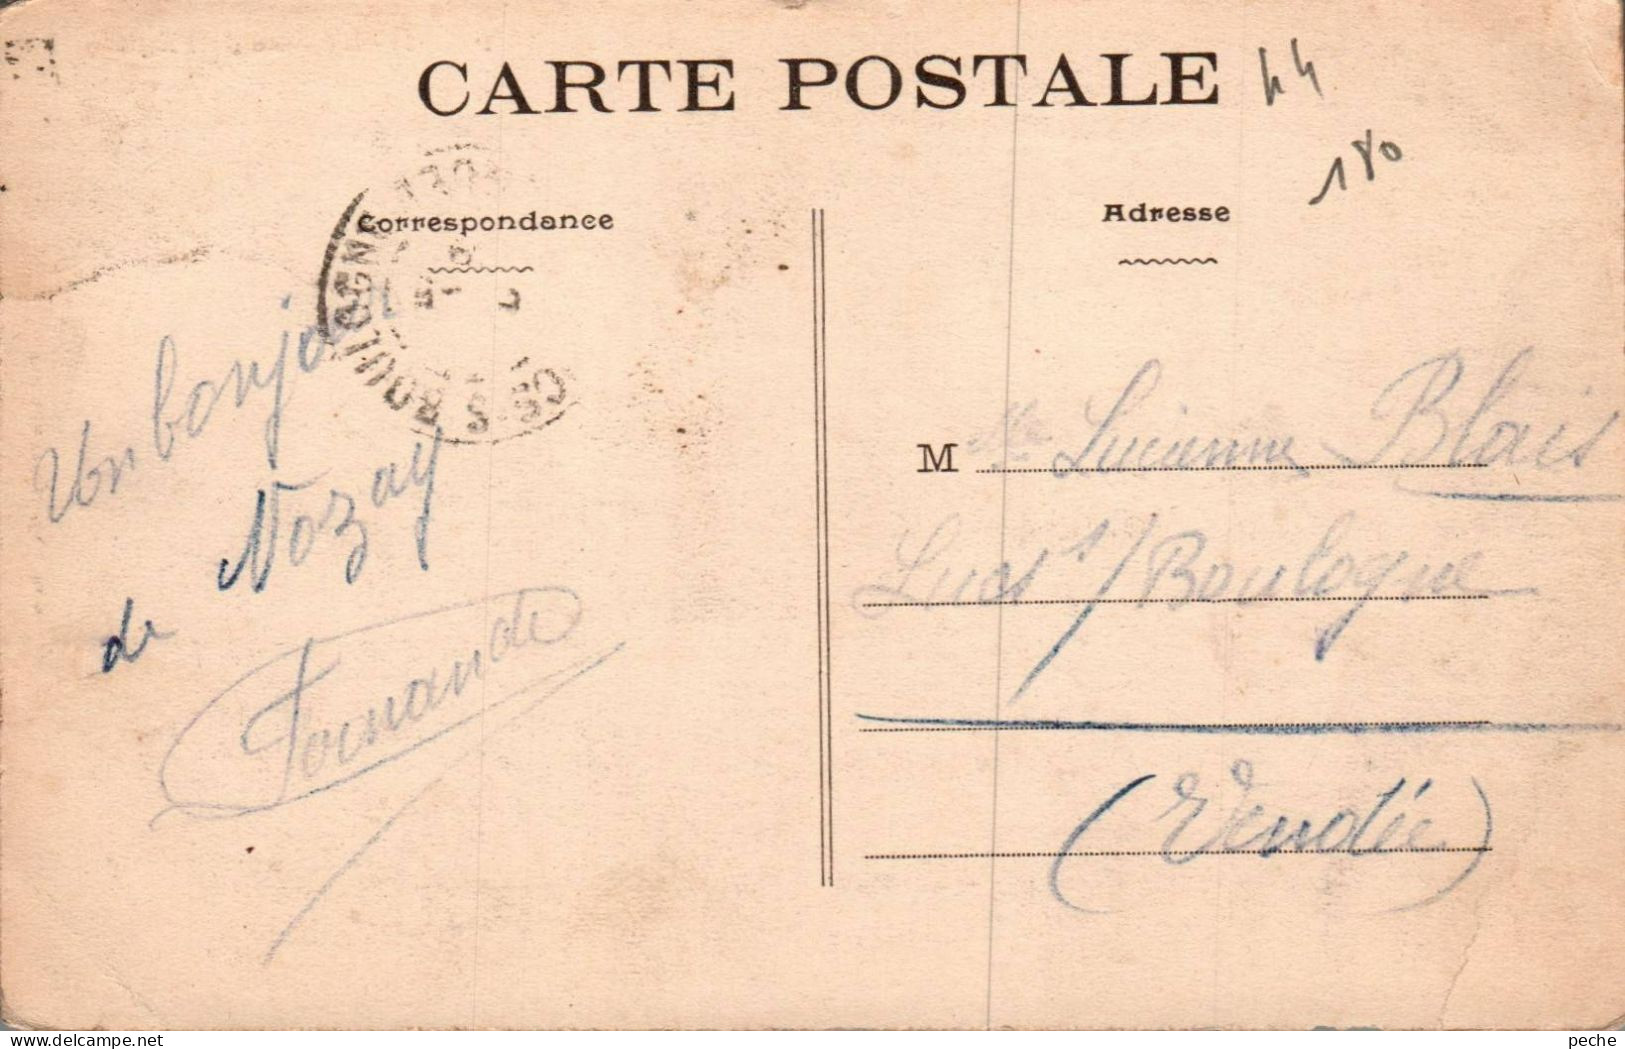 CARTE POSTALE
44
180
Correspondance
Adresse
Un bonjour
de Nozay
de
Fernande
M lle Lucienne Blais
Lucs s/ Boulogne
(Vendée)
BOULOGNE
delcampe.net
peche